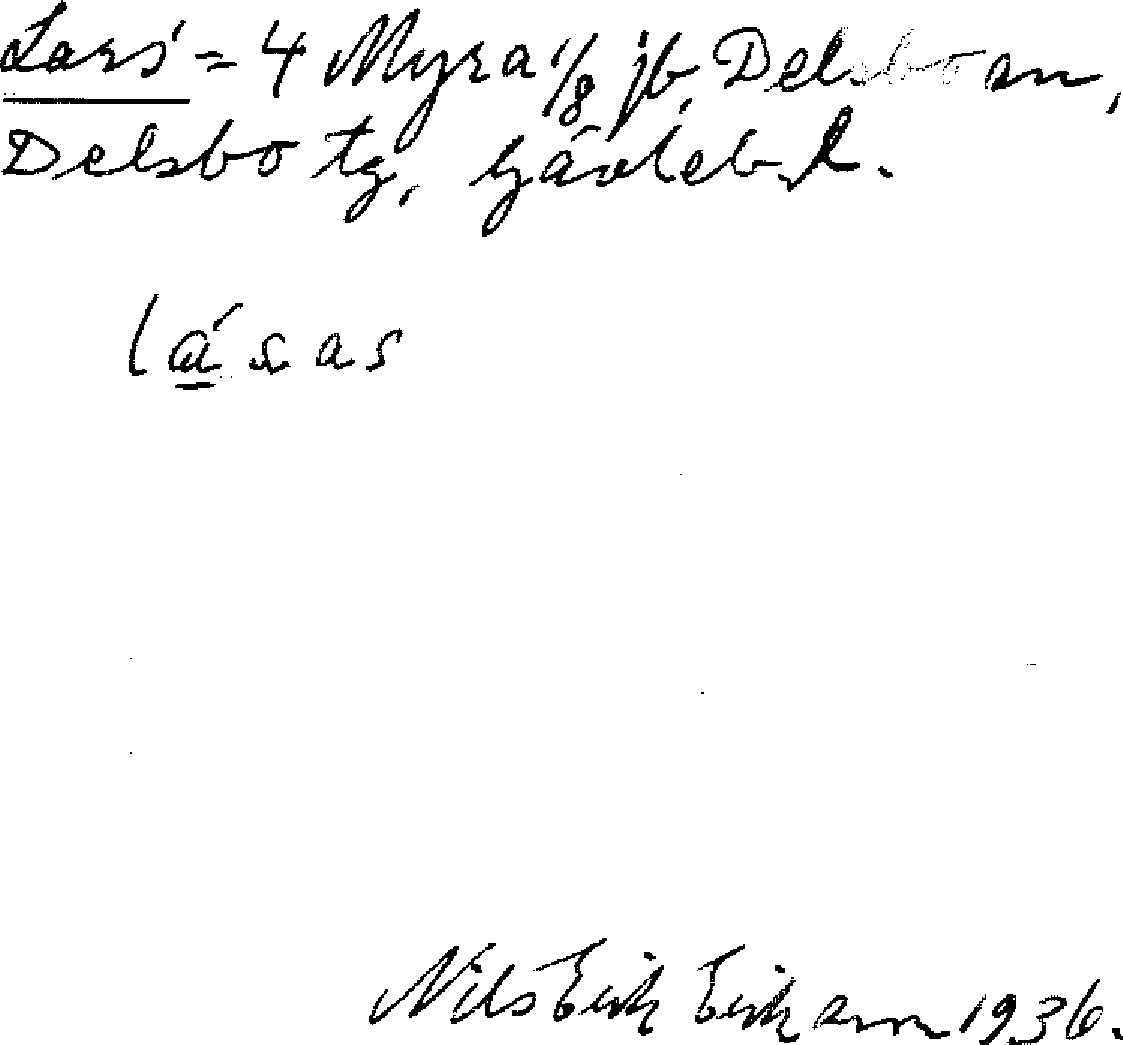 Lars' = 4 Myra 1/8 jb, Delsbo sn,
Delsbo tg, Gävleb. l.
lásas
Nils Erik Eriksson 1936.